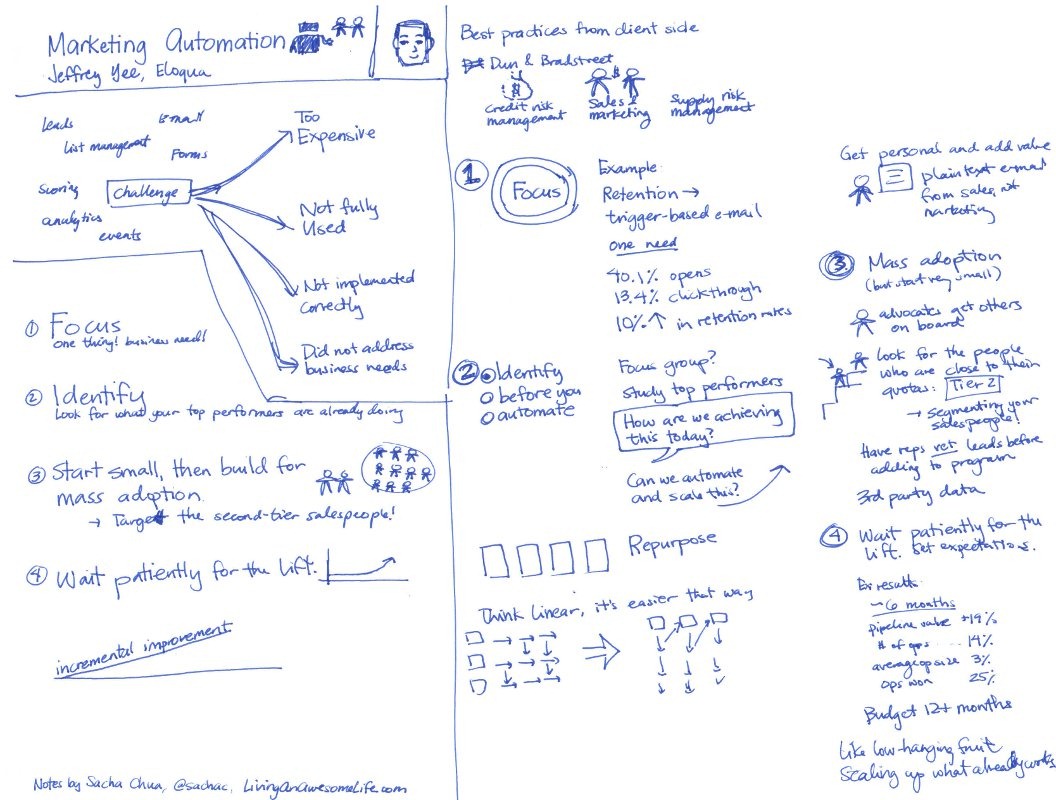 Marketing Automation
Jeffrey Yee, Eloqua
Leads
E-mail
List management
Forms
Scoring
Challenge
analytics
events
Too
Expensive
Not fully
Used
Not implemented
correctly
Did not address
business needs
① Focus
One thing! business need!
② Identify
Look for what your top performers are already doing
③ Start small, then build for
mass adoption.
→ Target the second-tier salespeople!
④ Wait patiently for the lift.
incremental improvement
Notes by Sacha Chua, @sachac, LivingAnAwesomeLife.com
Best practices from client side
Dun & Bradstreet
$
$
Credit risk
management
Sales &
marketing
Supply risk
management
1.
Focus
Example:
Retention →
trigger-based e-mail
one need
40.1% opens
13.4% clickthrough
10% ↑ in retention rates
2
Identify
before you
automate
Focus group?
Study top performers
How are we achieving
this today?
Can we automate
and scale this?
Repurpose
Think linear, it's easier that way
Get personal and add value
plain text e-mail
from sales, not
marketing
3 Mass adoption
(but start very small)
advocates get others
on board
look for the people
who are close to their
quotas: Tier 2
→ Segmenting your
salespeople!
Have reps vet leads before
adding to program
3rd party data
4 Wait patiently for the
lift. Set expectations.
Ex results:
~6 months
pipeline value +19%
# of ops 14%
average op size 3%
ops won 25%
Budget 12+ months
Like low-hanging fruit
Scaling up what already works